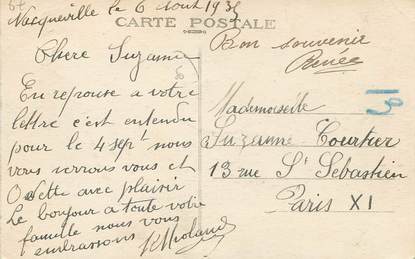 le 6 Août 193
CARTE POSTALE
Chere Suzanne
Bon souvenir
Renée
En reponse a votre
lettre c'est entendu
pour le 4 sept nous
vous verrons vous et
Odette avec plaisir
Le bonjour a toute votre
famille nous vous
embrassons
Mademoiselle
Suzanne Courtier
13 rue St Sebastien
Paris XI